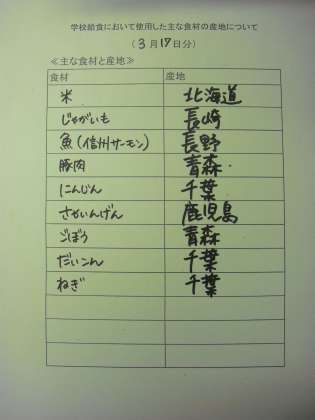 学校給食において使用した主な食材の産地について
(3月17日分)
≪主な食材と産地≫
食材 産地
米 北海道
じゃがいも 長崎
魚(信州サーモン) 長野
豚肉 青森
にんじん 千葉
さやいんげん 鹿児島
ごぼう 青森
だいこん 千葉
ねぎ 千葉